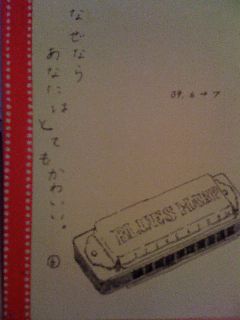 なぜなら
あなたは
とてもかわいい。
09.6→7
BLUES HARP